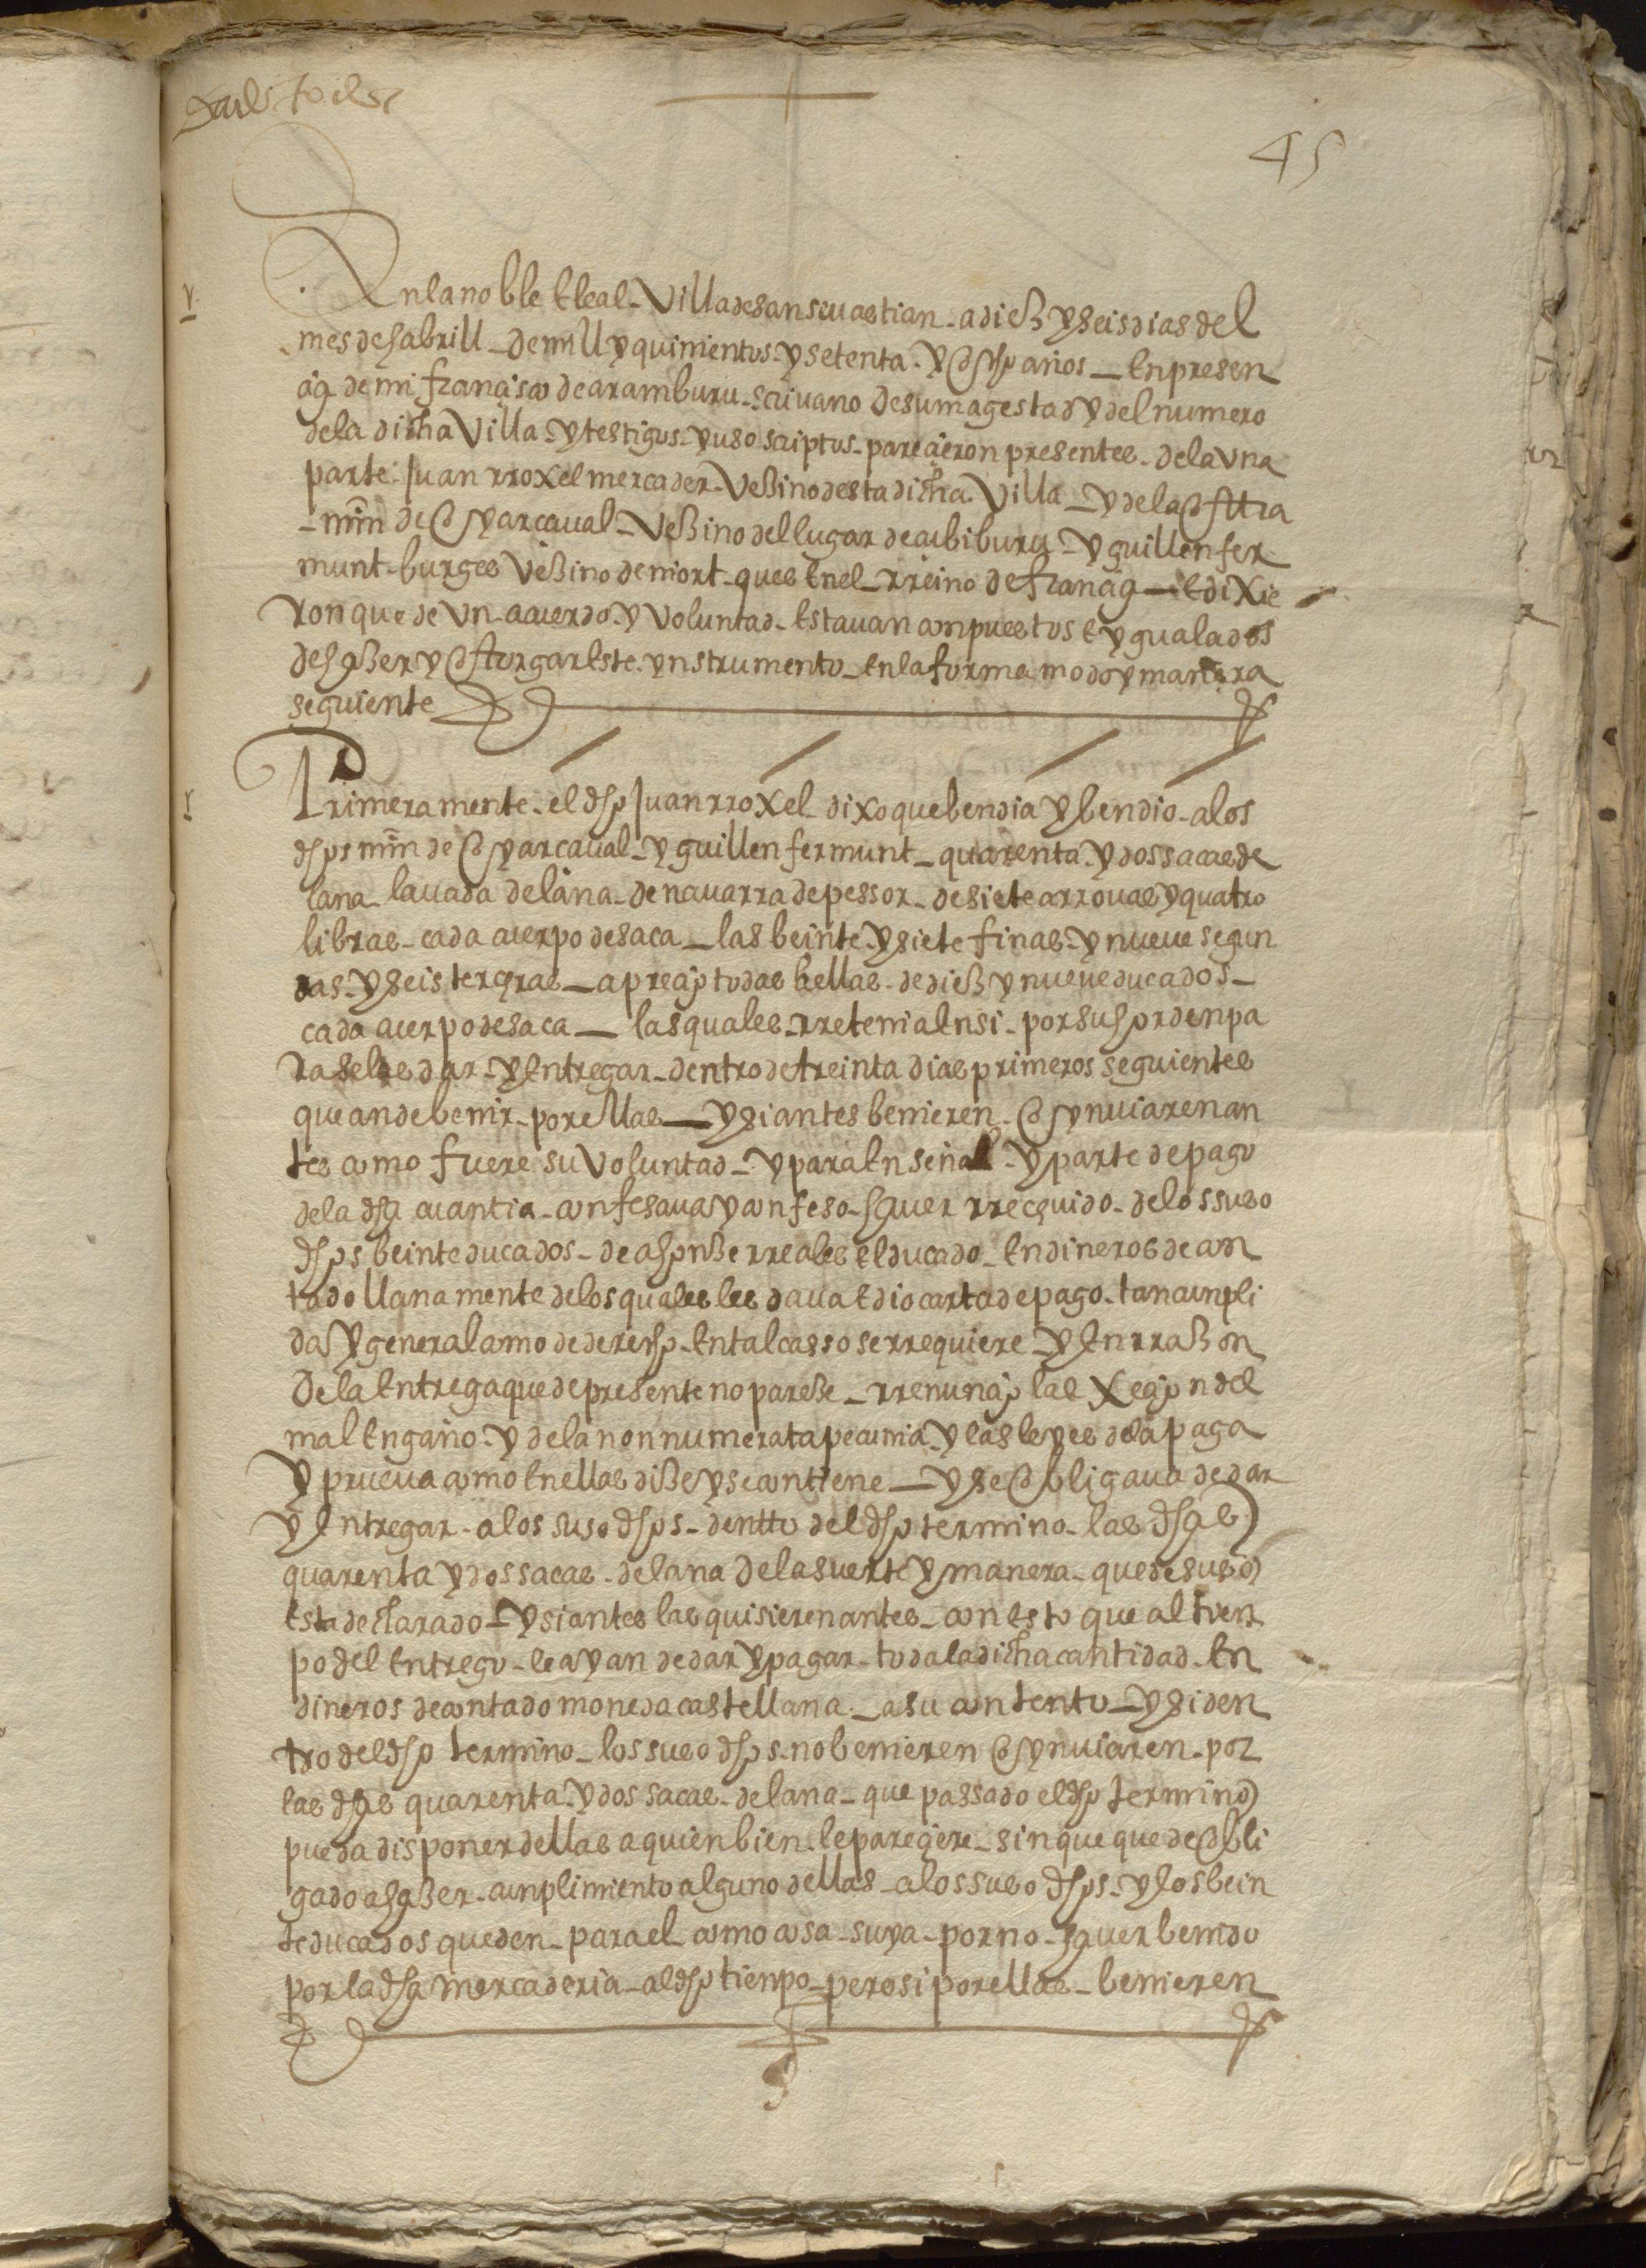 45
En la noble e leal villa de san sevastian a dieß y seis dias del
mes de habrill de mill y quinientos y setenta y ocho años en presen
cia de mi francisco de aramburu scrivano de su magestad y del numero
de la dicha villa y testigos yuso scriptos parecieron presentes de la una
parte Juan rroxel mercader veßino desta dicha villa y de la otra
min de oyarcaval veßino del lugar de cibiburu y guillen fer
munt burges veßino de niort ques en el rreino de francia e dixie
ron que de un acuerdo y voluntad estavan conpuestos e ygualados
de haßer y otorgar este ynstrumento en la forma modo y manera
seguiente
Primeramente el dho Juan rroxel dixo que bendia y bendio a los
dhos min de oyarcaval y guillen fermunt quarenta y dos sacas de
lana lavada de lana de navarra de pessor de siete arrovas y quatro
libras cada cuerpo de saca las beinte y siete finas y nueve segun
das y seis terceras a precio todas hellas de dieß y nueve ducados
cada cuerpo de saca las quales rretenia en si por su horden pa
ra se las dar y entregar dentro de treinta dias primeros seguientes
que an de benir por ellas y si antes benieren o ynviaren an
tes como fuere su voluntad y para en señal y parte de pago
de la dha cuantia confesava y confeso haver rrecevido de los suso
dhos beinte ducados de a honße rreales el ducado en dineros de con
tado llanamente de los quales les dava e dio carta de pago tan cunpli
da y general como de derecho en tal casso se rrequiere y en rraßon
de la entrega que de presente no pareße rrenuncio la exeçion del
mal engaño y de la non numerata pecunia y las leyes de la paga
y prueva como en ellas diße y se contiene y se obligava de dar
y entregar a los suso dhos dentro del dho termino las dhas
quarenta y dos sacas de lana de la suerte y manera que de suso
esta declarado y si antes las quisieren antes con esto que al tien
po del entrego le ayan de dar y pagar toda la dicha cantidad en
dineros de contado moneda castellana a su contento y si den
tro del dho termino los suso dhos no benieren o ynviaren por
las dhas quarenta y dos sacas de lana que passado el dho termino
pueda disponer dellas a quien bien le pareciere sin que quede obli
gado a haßer cunplimiento alguno dellas a los suso dhos y los bein
te ducados queden para el como cosa suya por no haver benido
por la dha mercaderia al dho tienpo pero si por ellas benieren